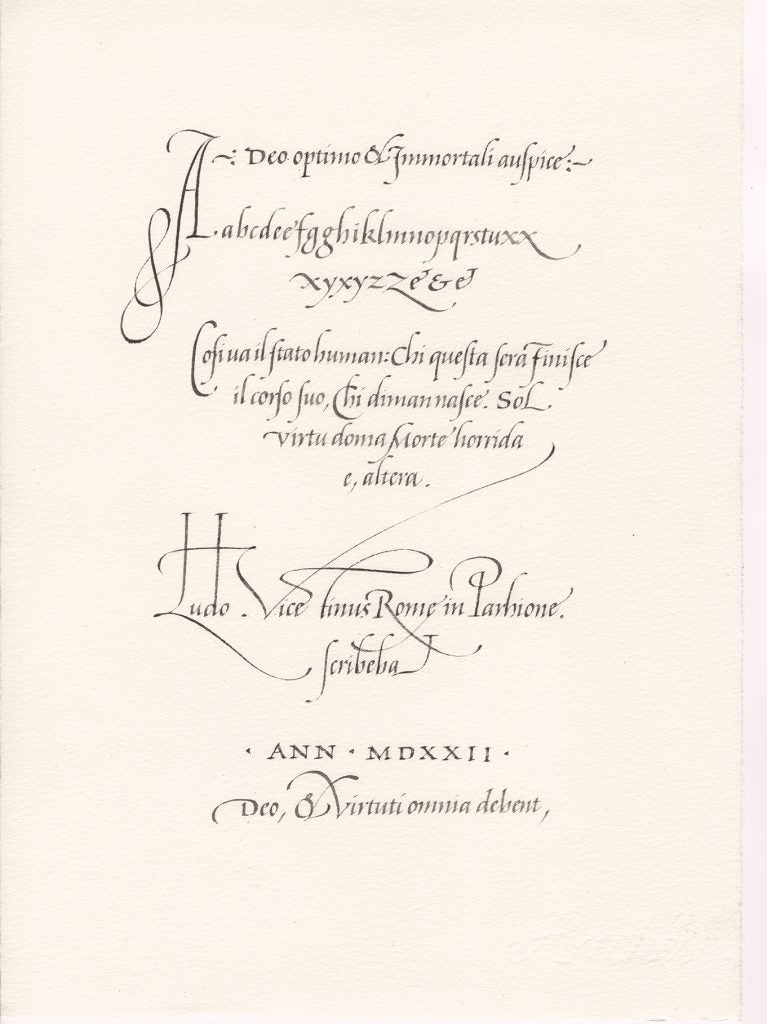 ~: Deo optimo & Immortali auspice :~
A. abcdeefgghiklmnopqrstuxx
xyxyzZe & e
Cosi va il stato human: Chi questa sera finisce
il corso suo, Chi diman nasce. Sol
virtu doma Morte horrida
e, altera.
Ludo. Vicentinus Rome in Parhione.
scribebat
· ANN · MDXXII ·
Deo, & Virtuti omnia debent,